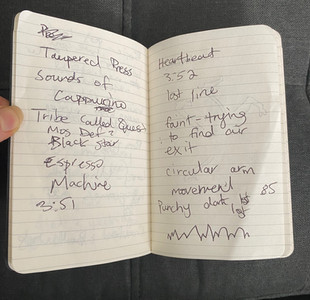 Tampered Press
Sounds of
Cappuccino
Tribe Called Quest
Mos Def ?
Black Star
Espresso
Machine
3:51
Heartbeat
3:52
last line
faint - trying
to find our
exit
circular arm
movement 85
Punchy dark